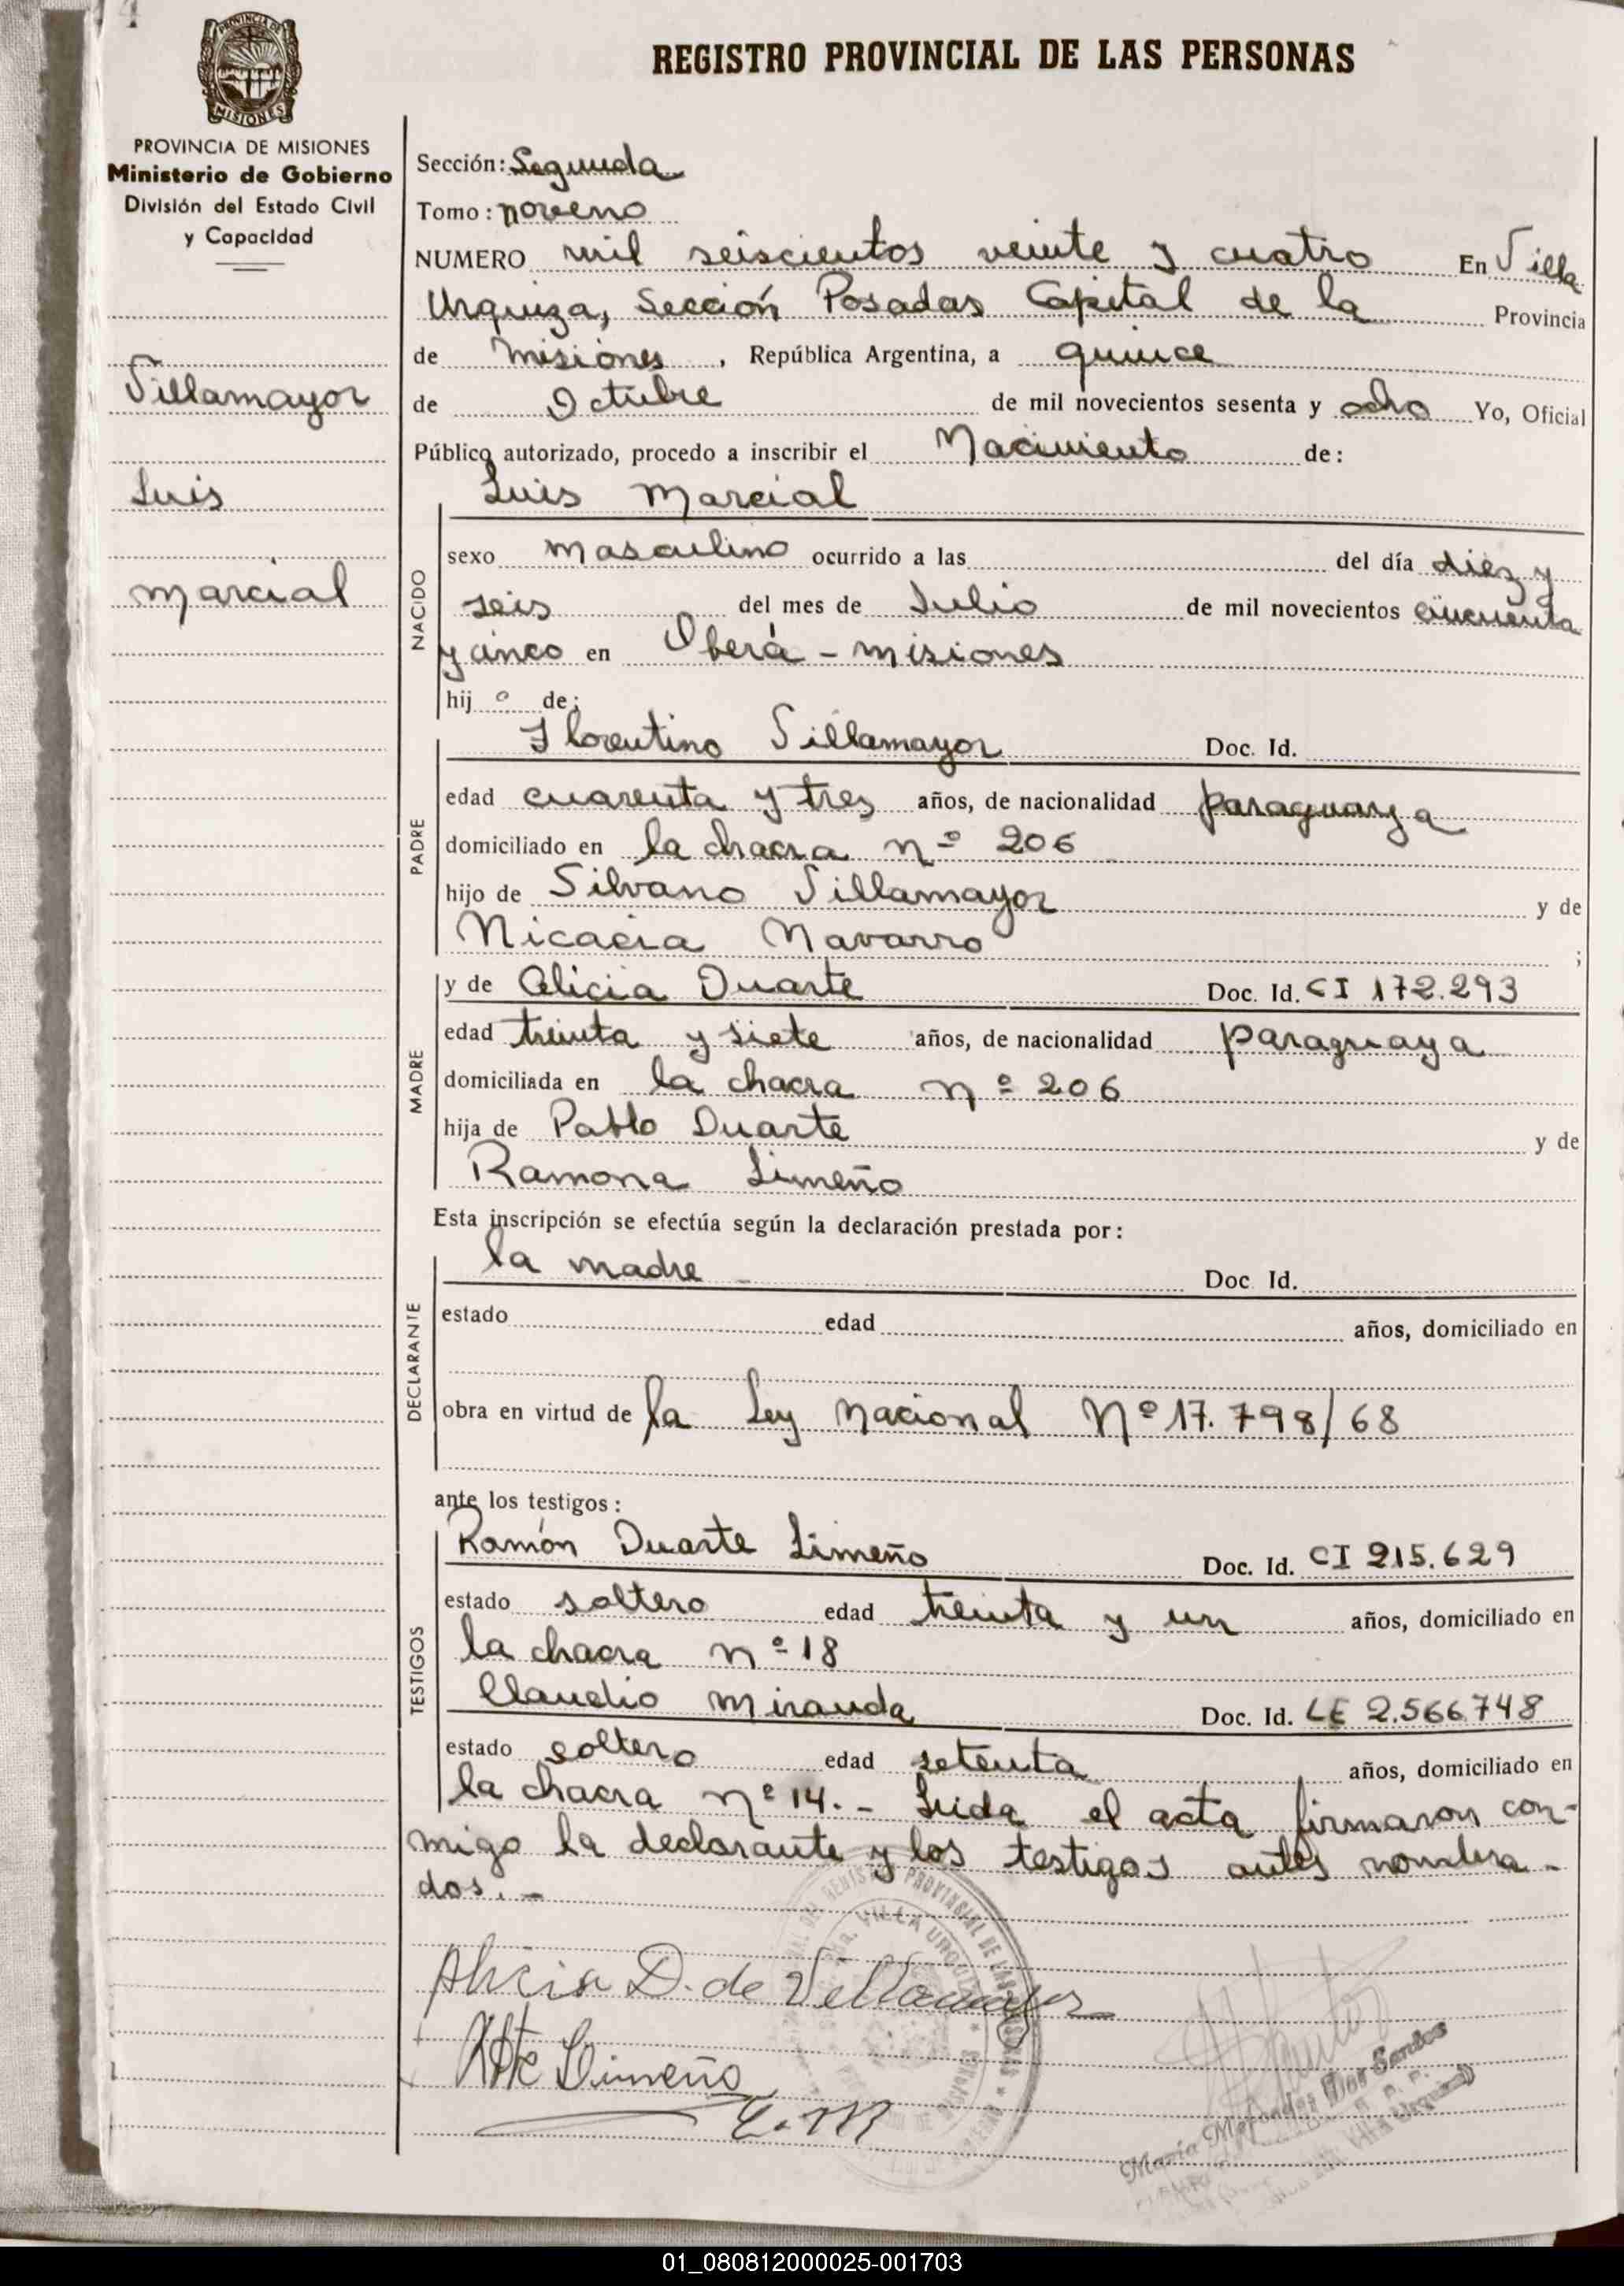 REGISTRO PROVINCIAL DE LAS PERSONAS
PROVINCIA DE MISIONES
Ministerio de Gobierno
División del Estado Civil
y Capacidad
Villamayor
Luis
Marcial
Sección: Segunda
Tomo: noveno
NUMERO mil seiscientos veinte y cuatro En Villa
Urquiza, Sección Posadas Capital de la Provincia
de Misiones, República Argentina, a quince
de Octubre de mil novecientos sesenta y ocho Yo, Oficial
Público autorizado, procedo a inscribir el Nacimiento de:
Luis Marcial
NACIDO
sexo masculino ocurrido a las del día diez y
seis del mes de Julio de mil novecientos cincuenta
y cinco en Oberá - Misiones
hijo de:
PADRE
Florentino Villamayor Doc. Id.
edad cuarenta y tres años, de nacionalidad paraguaya
domiciliado en la chacra nº 206
hijo de Silvano Villamayor y de
Nicacia Navarro ;
MADRE
y de Alicia Duarte Doc. Id. CI 172.293
edad treinta y siete años, de nacionalidad paraguaya
domiciliada en la chacra nº 206
hija de Pablo Duarte y de
Ramona Limeño
Esta inscripción se efectúa según la declaración prestada por:
DECLARANTE
la madre - Doc. Id.
estado edad años, domiciliado en
obra en virtud de la Ley Nacional Nº 17.798/68
ante los testigos:
TESTIGOS
Ramón Duarte Limeño Doc. Id. CI 215.629
estado soltero edad treinta y un años, domiciliado en
la chacra nº 18
Claudio Miranda Doc. Id. LE 2.566.748
estado soltero edad setenta años, domiciliado en
la chacra nº 14.- Leida el acta firmaron con-
migo la declarante y los testigos antes nombra-
dos.-
Alicia D. de Villamayor
Limeño
C. M
VILLA URQUIZA
PROVINCIAL DE LAS PERSONAS
Dos Santos
01_080812000025-001703